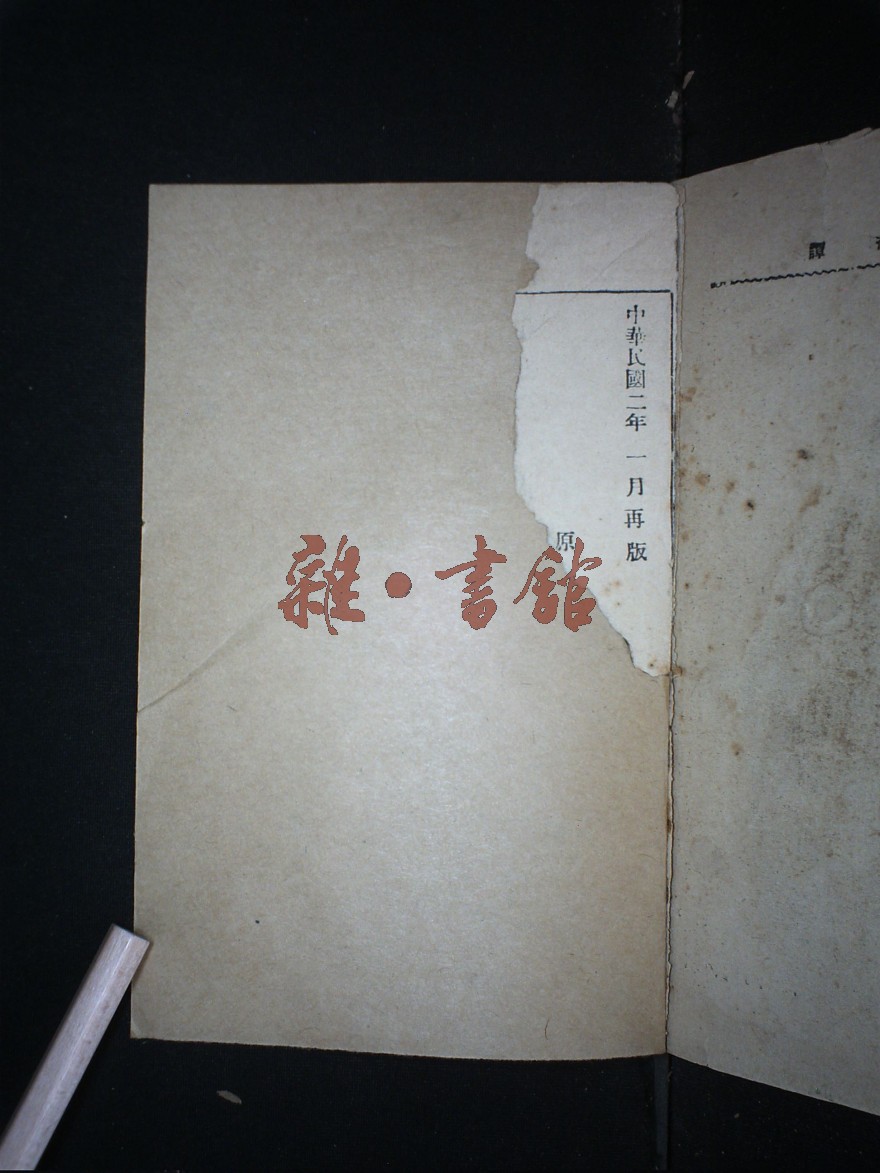 譚
中華民國二年一月再版
原
雜·書館